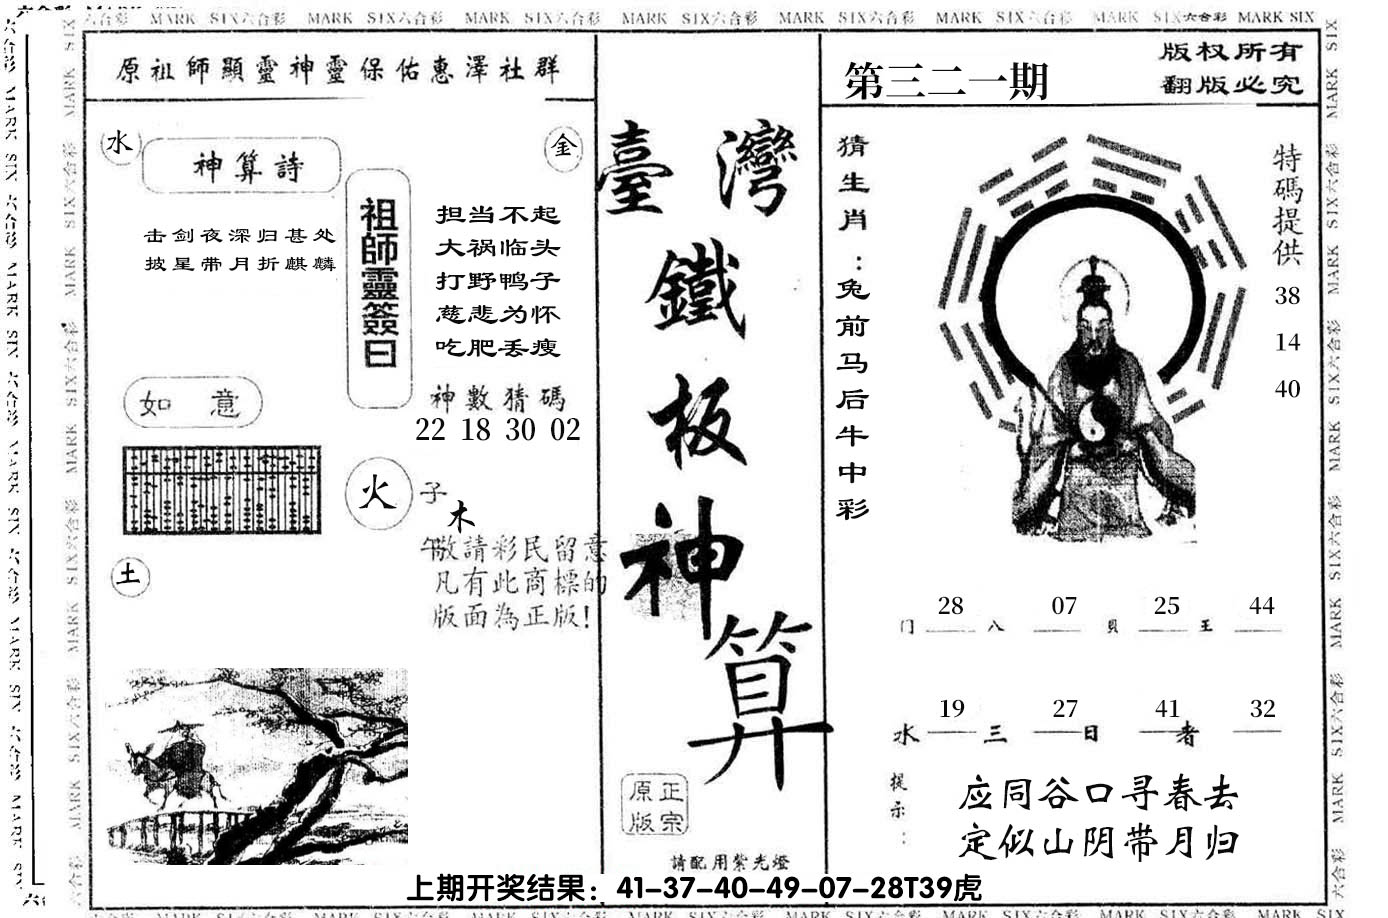 MARK SIX六合彩 MARK SIX六合彩 MARK SIX六合彩 MARK SIX六合彩 MARK SIX六合彩 MARK SIX六合彩 MARK SIX六合彩 MARK SIX
原祖師顯靈神靈保佑惠澤社群
水
神算詩
金
击剑夜深归甚处
披星带月折麒麟
祖師靈簽曰
担当不起
大祸临头
打野鸭子
慈悲为怀
吃肥丢瘦
神數猜碼
22 18 30 02
如意
火
子
木
午
土
敬請彩民留意
凡有此商標的
版面為正版!
臺灣
鐵
板
神
算
正宗
原版
請配用紫光燈
第三二一期
版权所有
翻版必究
猜生肖:兔前马后牛中彩
特碼提供
38
14
40
28 07 25 44
门 八 貝 王
19 27 41 32
水 三 日 者
提示:
应同谷口寻春去
定似山阴带月归
上期开奖结果：41-37-40-49-07-28T39虎